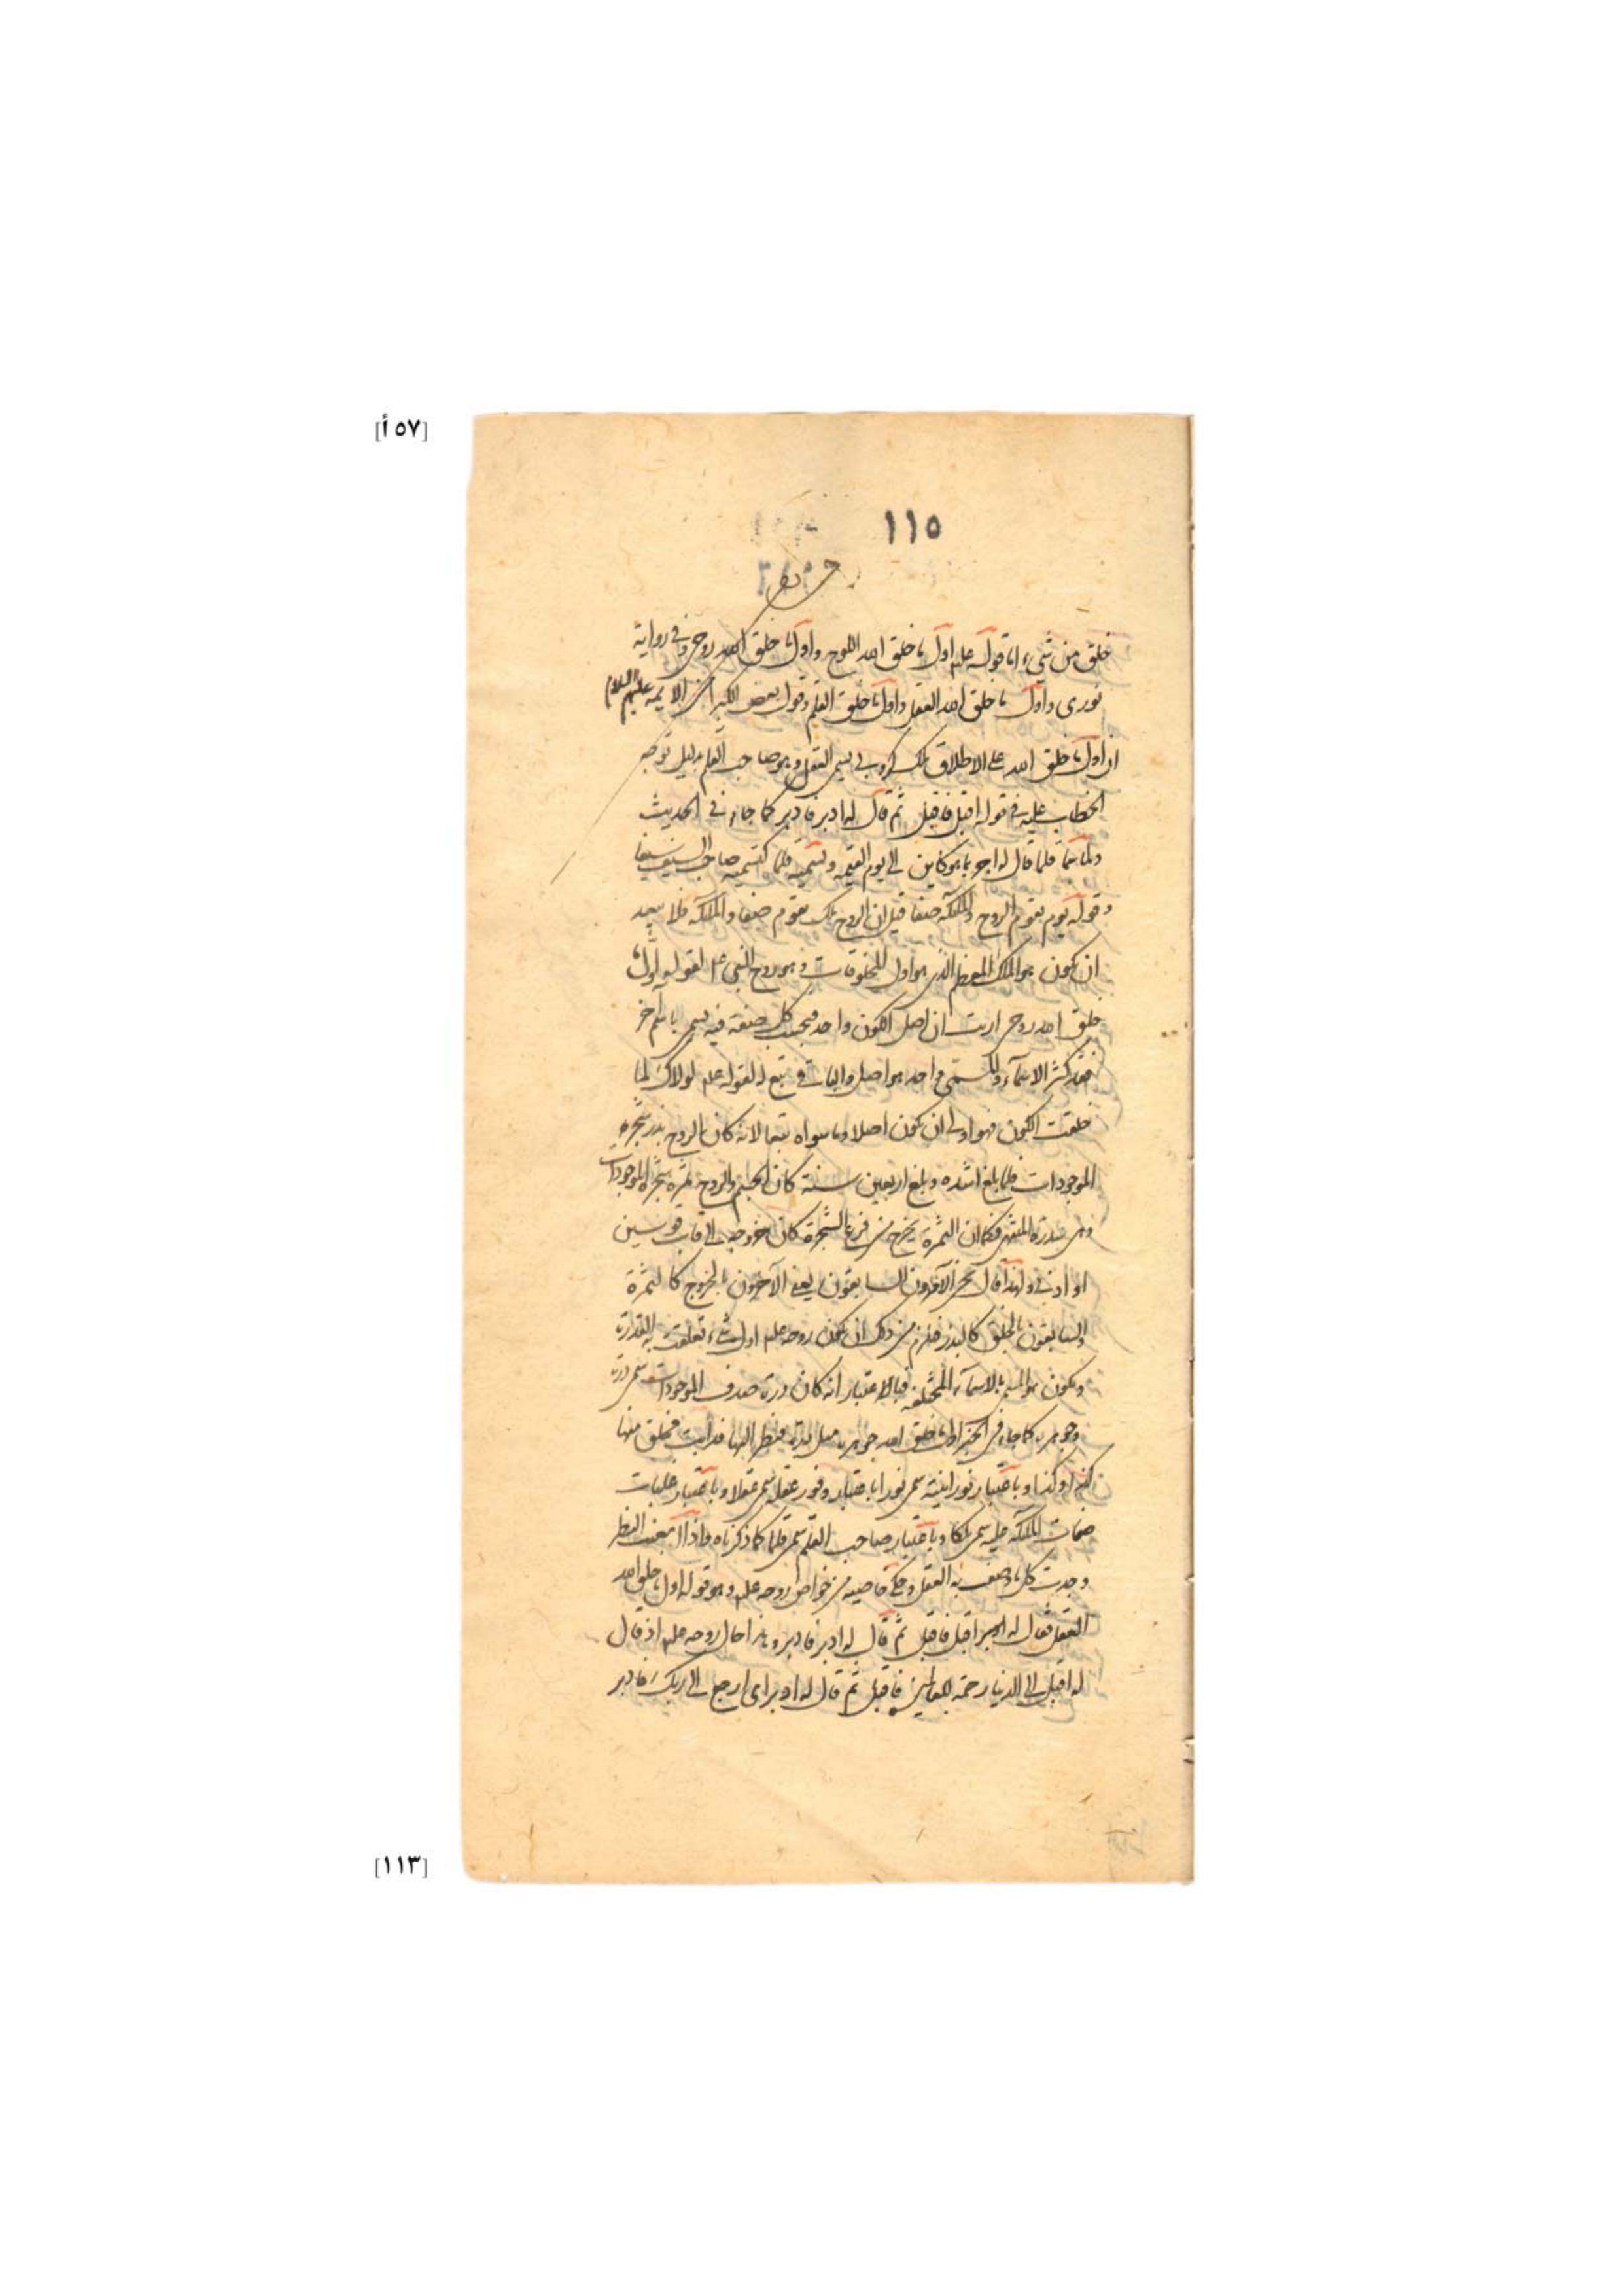 [٥٧ أ]
١١٥
خلق من شيء اما قوله علم اول ما خلق الله اللوح واول ما خلق الله روحي وفي رواية
نوري واول ما خلق الله العقل واول ما خلق القلم وقول بعض الكبرا من الايمه عليهم السلام
ان اول ما خلق الله على الاطلاق ملك كروبي يسمى العقل وهو صاحب القلم بدليل توجه
الخطاب عليه في قوله اقبل فاقبل ثم قال له ادبر فادبر كما جاء في الحديث
ولما سماه قلما قال له اجر بما هو كاين الى يوم القيمه وتسميه قلما كتسميه صاحب السيف سيفا
وقوله يوم يقوم الروح والملئكه صفا قيل ان الروح ملك يقوم صفا والملئكه فلا يبعد
ان يكون هو الملك المعظم الذي هو اول المخلوقات وهو روح النبي علم لقوله اول ما
خلق الله روحي ارت ان اصل الكون واحد فبحسب كل صفة فيه يسمى باسم آخر
فقد كثر الاسماء والمسمى واحد هو اصل والباقي تبع له لقوله علم لولاك لما
خلقت الكون فهو اولى ان يكون اصلا وما سواه تبعا لانه كان بالروح بذر شجرة
الموجودات فلما بلغ اشده وبلغ اربعين سنة كان الجسم والروح ثمرة شجرة الموجودات
وهي سدرة المنتهى فكما ان الثمرة يخرج من فرع الشجرة كان خروجه الى قاب قوسين
او ادنى ولهذا قال نحن الآخرون السابقون يعني الآخرون بالخروج كالثمرة
والسابقون بالخلق كالبذر فلزم من ذلك ان يكون روحه علم اول شيء تعلقت به القدرة
ويكون هو المسمى بالاسماء المختلفه فبالاعتبار انه كان درة صدف الموجودات سمي درة
وجوهره كما جاء في الخبر اول ما خلق الله جوهره فنظر اليها فذابت فخلق منها
كذا وكذا وباعتبار نورانيته سمي نورا باعتبار وفور عقله سمي عقلا وباعتبار غلبات
صفات الملئكه عليه سمي ملكا وباعتبار صاحب القلم سمي قلما كما ذكرناه واذا امعنت النظر
وجدت كل ما وصف به العقل وحكي خاصيه من خواص روحه علم وهو قوله اول ما خلق الله
العقل فقال له اقبل فاقبل ثم قال له ادبر فادبر وهذا حال روحه علم اذ قال
له اقبل الى الدنيا رحمة للعالمين فاقبل ثم قال له ادبر اي ارجع الى ربك فادبر
[١١٣]